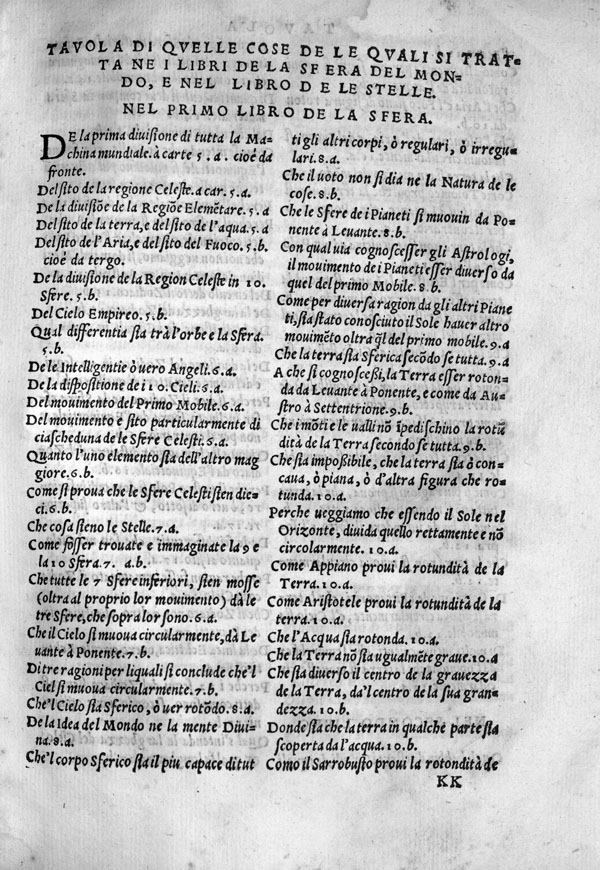 TAVOLA DI QVELLE COSE DE LE QVALI SI TRAT-
TA NE I LIBRI DE LA SFERA DEL MON-
DO, E NEL LIBRO DE LE STELLE.
NEL PRIMO LIBRO DE LA SFERA.
DE la prima diuisione di tutta la Ma-
china mundiale. à carte 5. a. cioé da
fronte.
Del sito de la regione Celeste. a car. 5. a
De la diuisiõe de la Regiõe Elemẽtare. 5. a
Del sito de la terra, e del sito de l'aqua. 5. a
Del sito de l'Aria, e del sito del Fuoco. 5. b.
cioé da tergo.
De la diuisione de la Region Celeste in 10.
Sfere. 5. b.
Del Cielo Empireo. 5. b.
Qual differentia sia trà l'orbe e la Sfera.
5. b.
De le Intelligentie ò uero Angeli. 6. a.
De la dispositione de i 10. Cieli. 6. a.
Del mouimento del Primo Mobile. 6. a.
Del mouimento e sito particularmente di
ciascheduna de le Sfere Celesti. 6. a.
Quanto l'uno elemento sia dell'altro mag
giore. 6. b.
Come si proua che le Sfere Celesti sien die-
ci. 6. b.
Che cosa sieno le Stelle. 7. a.
Come fosser trouate e immaginate la 9 e
la 10 Sfera. 7. a. b.
Che tutte le 7 Sfere inferiori, sien mosse
(oltra al proprio lor mouimento) dà le
tre Sfere, che sopra lor sono. 6. a.
Che il Cielo si muoua circularmente, dà Le
uante à Ponente. 7. b.
Di tre ragioni per liquali si conclude che'l
Ciel si muoua circularmente. 7. b.
Che'l Cielo sia Sferico, ò uer rotõdo. 8. a.
De la Idea del Mondo ne la mente Diui-
na. 8. a.
Che'l corpo Sferico sia il piu capace di tut
ti gli altri corpi, ò regulari, ò irregu-
lari. 8. a.
Che il uoto non si dia ne la Natura de le
cose. 8. b.
Che le Sfere de i Pianeti si muouin da Po-
nente à Leuante. 8. b.
Con qual uia cognoscesser gli Astrologi,
il mouimento de i Pianeti esser diuerso da
quel del primo Mobile. 8. b.
Come per diuersa ragion da gli altri Piane
ti, sia stato conosciuto il Sole hauer altro
mouimẽto oltra q̃l del primo mobile. 9. a
Che la terra sia Sferica secõdo se tutta. 9. a
A che si cognoscessi, la Terra esser roton-
da da Leuante à Ponente, e come da Au-
stro à Settentrione. 9. b.
Che i mõti e le ualli nõ ĩpedischino la rotũ
dità de la Terra secondo se tutta. 9. b.
Che sia impoßibile, che la terra sia ò con-
caua, ò piana, ò d'altra figura che ro-
tunda. 10. a.
Perche ueggiamo che essendo il Sole nel
Orizonte, diuida quello rettamente e nõ
circolarmente. 10. a.
Come Appiano proui la rotundità de la
Terra. 10. a.
Come Aristotele proui la rotundità de la
terra. 10. a.
Che l'Acqua sia rotonda. 10. a.
Che la Terra nõ sia ugualmẽte graue. 10. a
Che sia diuerso il centro de la grauezza
de la Terra, da'l centro de la sua gran-
dezza. 10. b.
Donde sia che la terra in qualche parte sia
scoperta da l'acqua. 10. b.
Como il Sarrobusto proui la rotondità de
KK